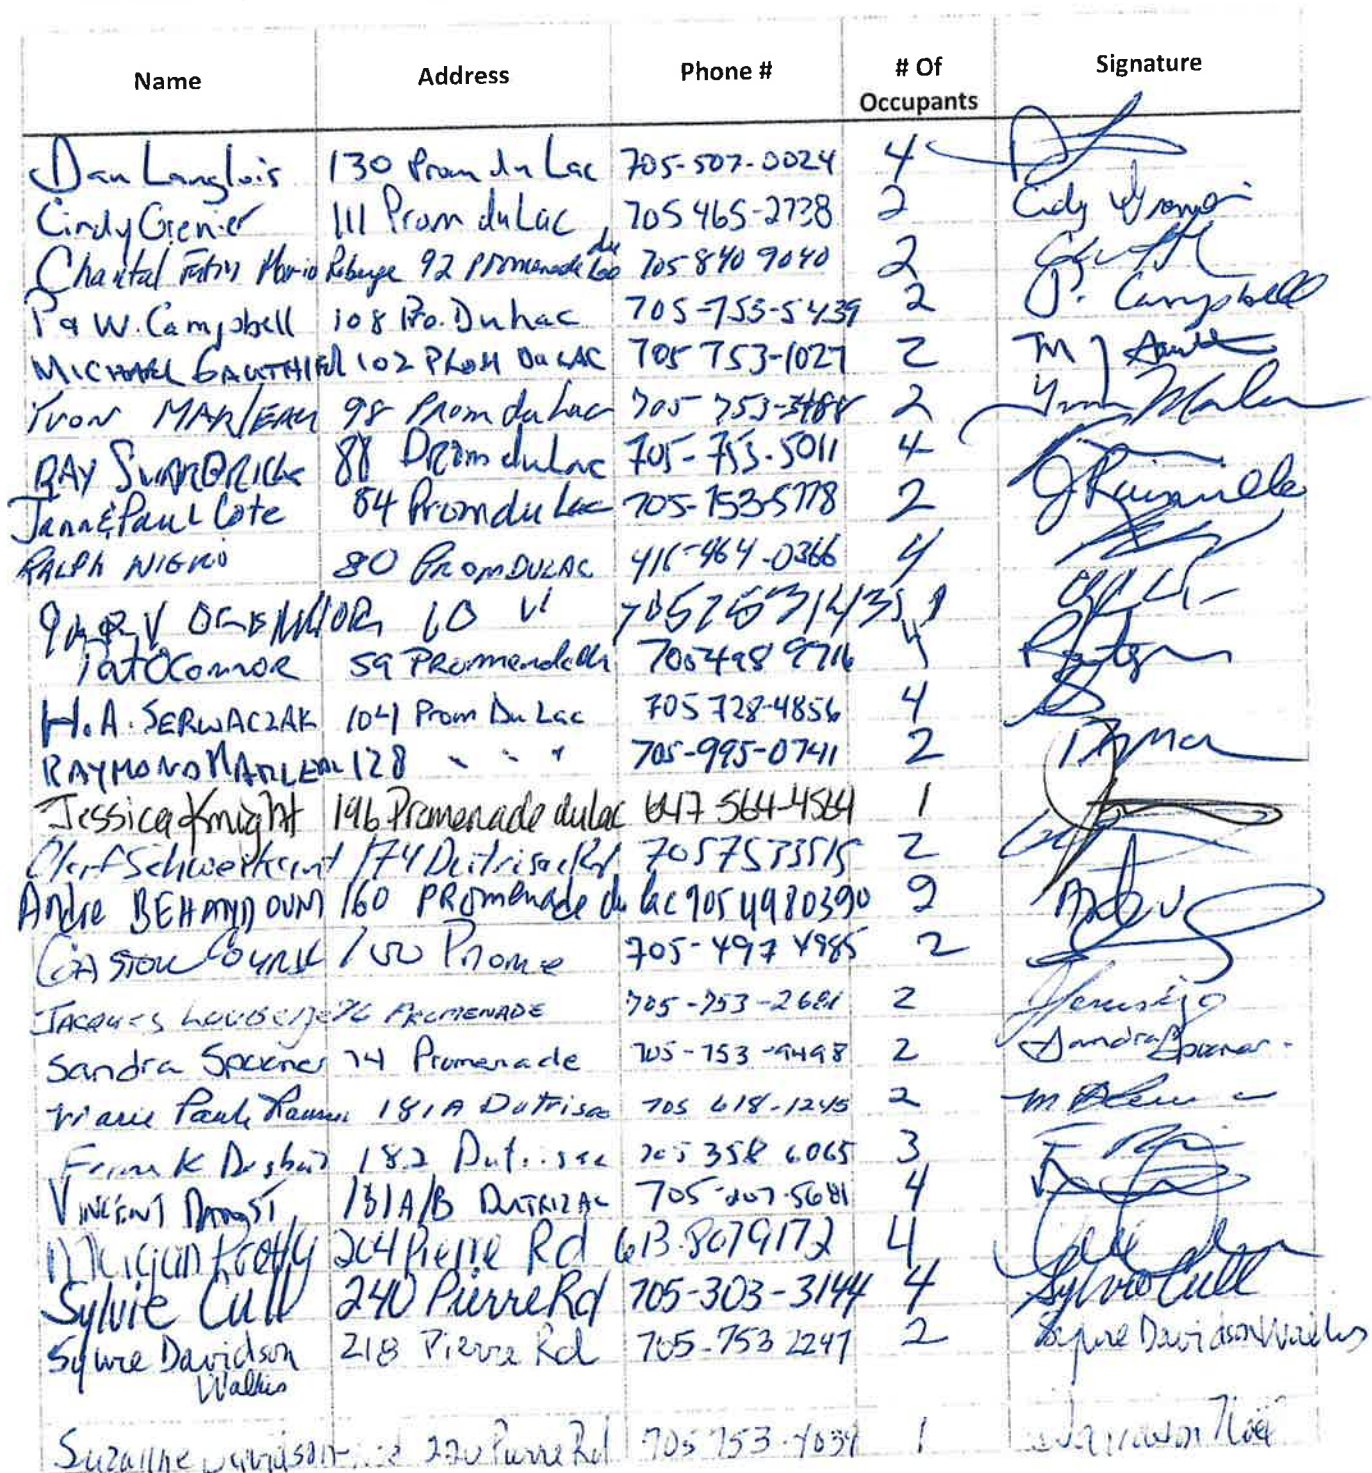 Name Address Phone # # Of Occupants Signature
Dan Langlois 130 Prom du Lac 705-507-0024 4
Cindy Grenier 111 Prom du Lac 705 465-2738 2 Cindy Grenier
Chantal Mario Roberge 92 Promenade du Lac 705 840 9040 2
P & W. Campbell 108 Pro. Du Lac 705-753-5439 2 P. Campbell
MICHAEL GAUTHIER 102 PROM DU LAC 705 753-1027 2 M J
YVON MARLEAU 98 Prom du Lac 705 753-3488 2
RAY SWARBRICK 88 Prom du Lac 705-753-5011 4
Jann & Paul Cote 84 Prom du Lac 705-753-5778 2 J Rainville
RALPH NIGRO 80 PROM DU LAC 416-464-0366 4
60 "
Pat O'Connor 59 Promenade 705 498 9716
H.A. SERWACZAK 104 Prom Du Lac 705 728-4856 4
RAYMOND MARLEAU 128 " " " 705-995-0741 2
Jessica Knight 196 Promenade du lac 647 564-4564 1
174 Dutrisac Rd 705 753 3515 2
Andre BEHAMDOUNI 160 PROmenade du lac 905 4980390 2
GASTON 100 Prome 705-497 4985 2
JACQUES 76 PROMENADE 705-753-2681 2
Sandra Spooner 74 Promenade 705-753-9498 2 Sandra Spooner
Marie Paule 181A Dutrisac 705 618-1245 2
182 Dutrisac 705 358 6065 3
VINCENT 181A/B DUTRIZAC 4
204 Pierre Rd 613-8079172 4
Sylvie Cull 240 Pierre Rd 705-303-3144 4 Sylvie Cull
Sylvie Davidson Walkis 218 Pierre Rd 705-753 2247 2 Sylvie Davidson
Suzanne Davidson 220 Pierre Rd 705 753-4034 1 Noël